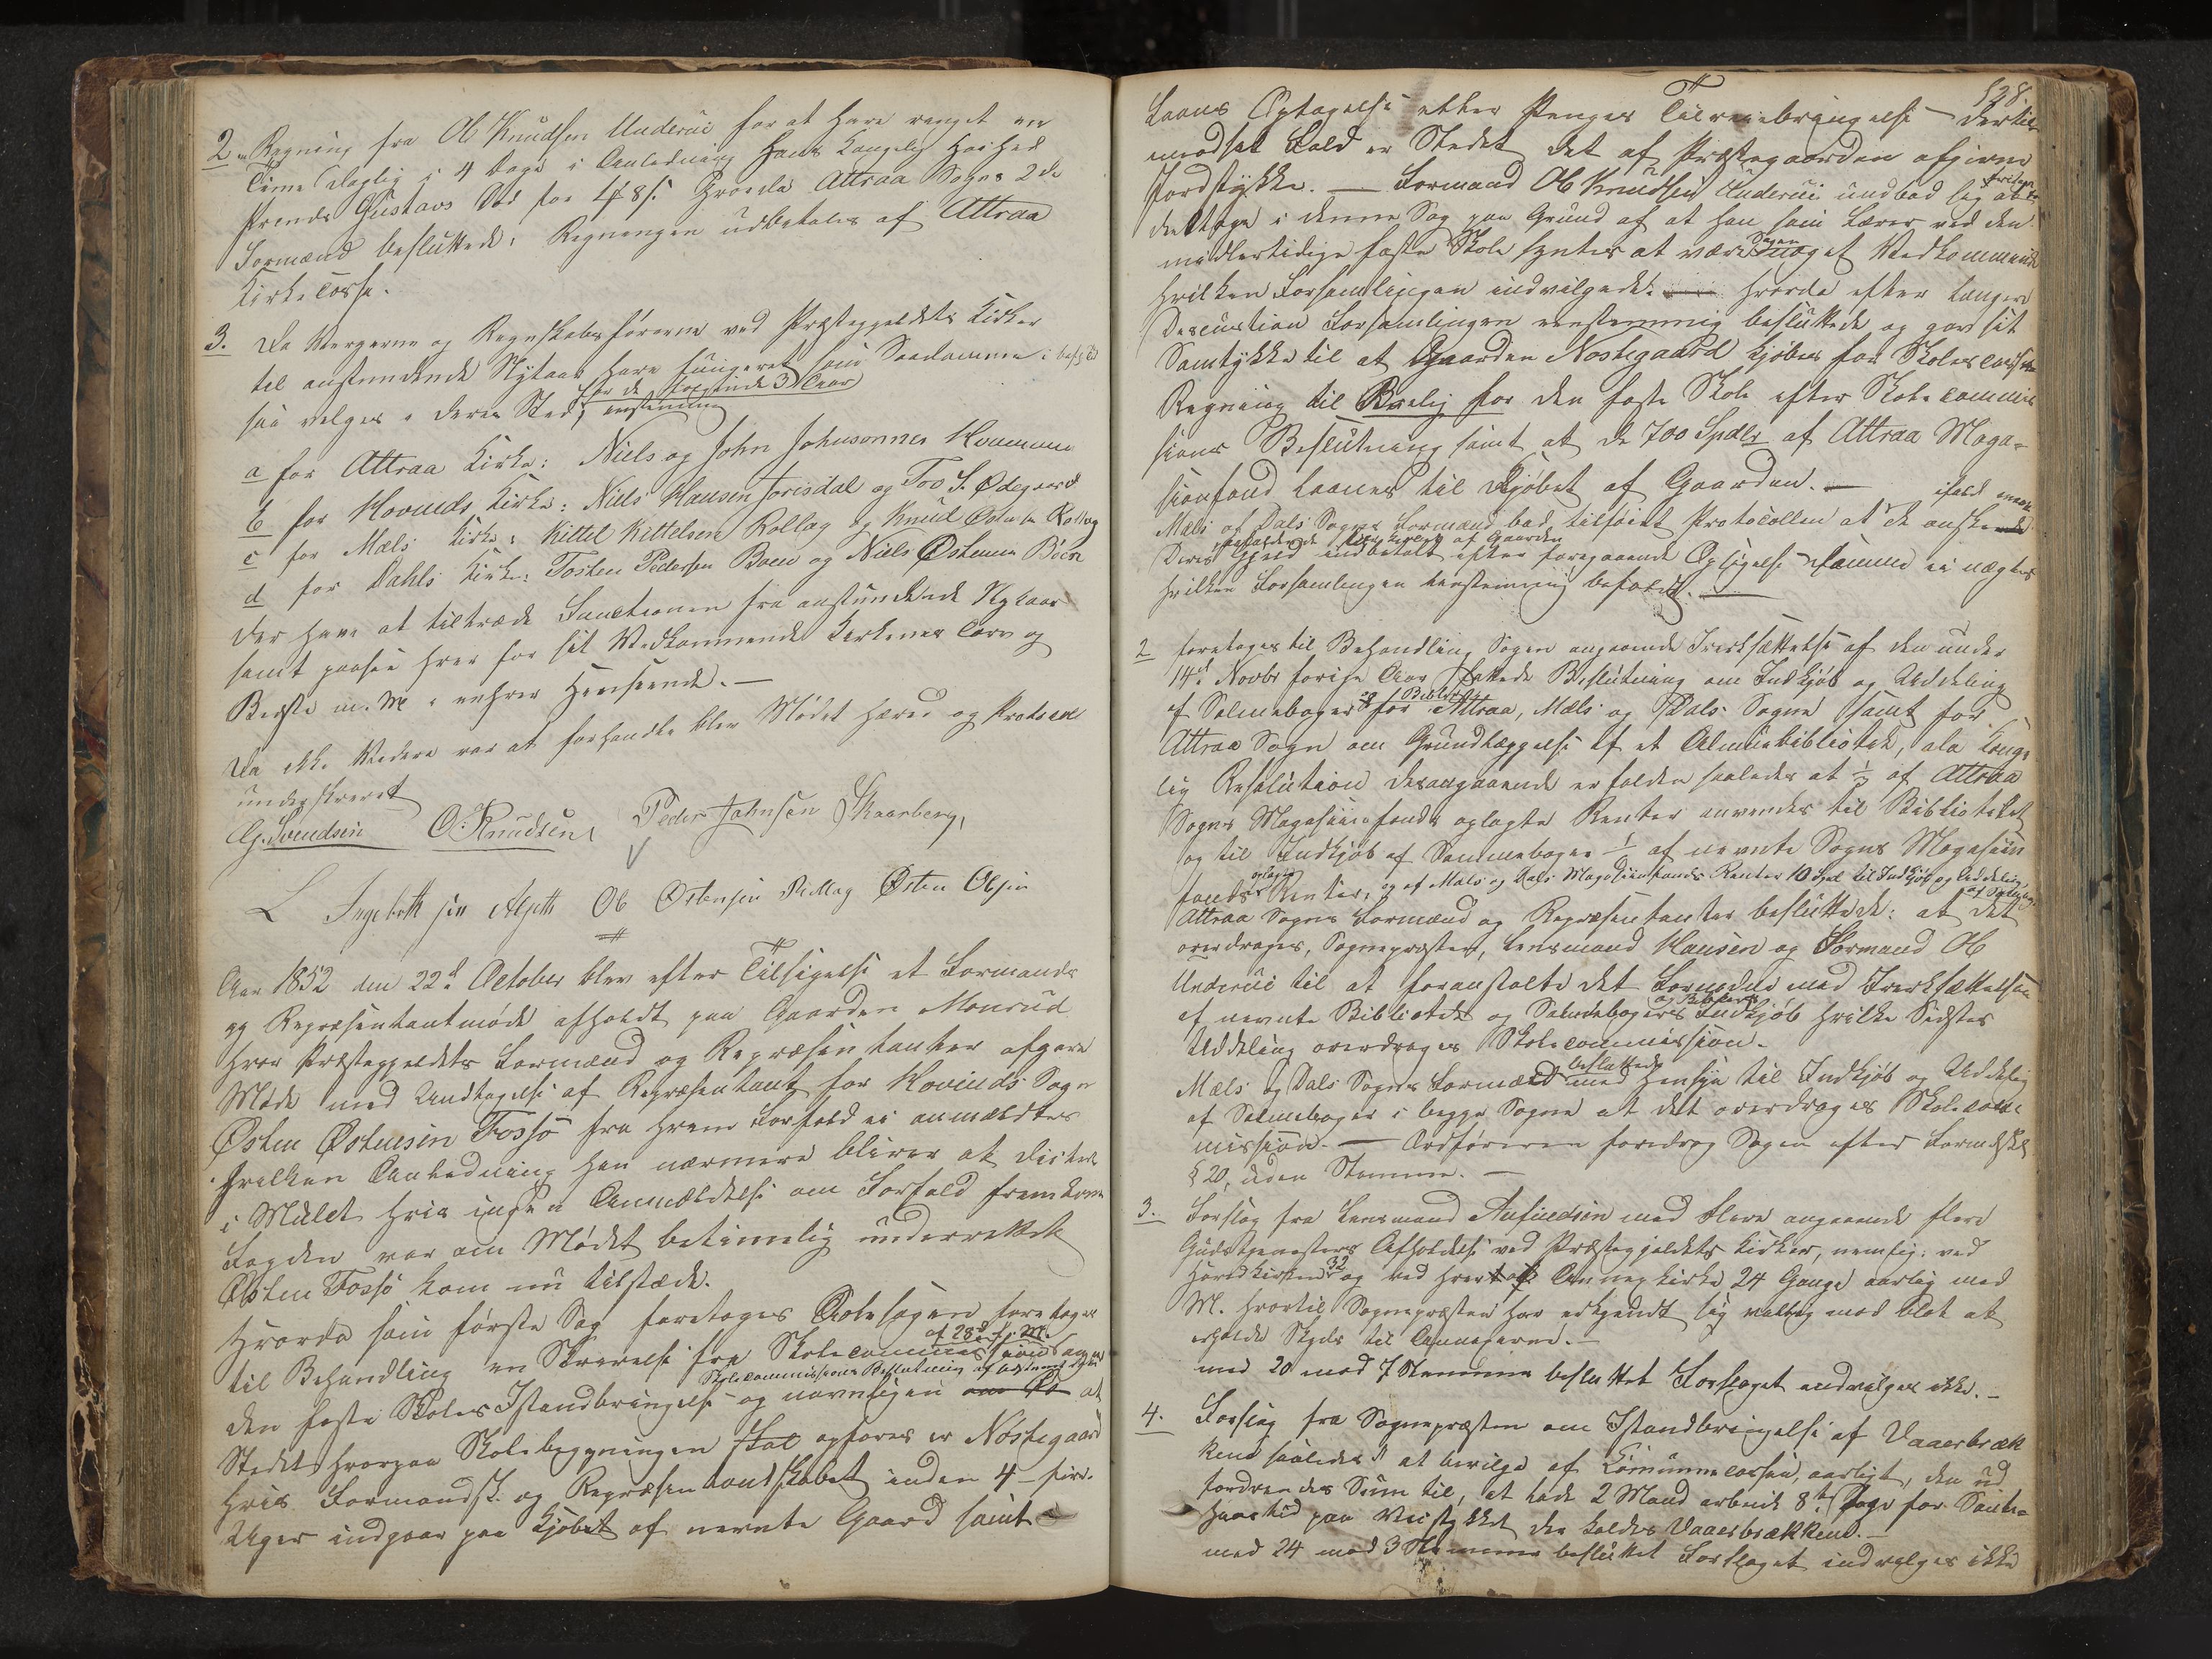 2. Regning fra Ol Knudsen Underüi for at have ringet en
Time daglig i 4 Dage i Anledning Hans Kongelig Høihed
Prinds Gustavs Død for 48 s. Hvorda Attraa Sogns 2de
Formænd besluttede: Regningen udbetales af Attraa
Kirke Casse.
3. Da Værgerne og Regnskabsførerne ved Præstegjeldets Kirker
til anstundende Nytaar have fungeret som Saadanne i
saa velges i deres Sted, for de følgende 3 Aar
enstemmig
a for Attraa Kirke: Niels og John Johnsønner
b for Hovinds Kirke: Niels Hansen Jorisdal og Tov S. Ødegaard
c for Mæls Kirke: Kittel Kittelsen Rollag og Knud Rollag
d for Dahls Kirke: Tosten Pedersen Boen og Niels Østensen Böen
der have at tiltræde Functionen fra anstundende Nytaar
samt paasee hver for sit Vedkommende Kirkernes Tarv og
Bedste m. M i enhver Henseende. —
Da ikke Videre var at forhandle blev Mødet hævet og Protocol
underskrevet
G. Svendsen O. Knudsen Peder Johnsen Skaarberg,
Ingebret Ole Østensen Rollag Østen Olsen
Aar 1852 den 22d October blev efter Tilsigelse et Formands
og Repræsentantmøde afholdt paa Gaarden Monrud
hvor Præstegjeldets Formænd og Repræsentanter afgave
Møde med Undtagelse af Repræsentant for Hovinds Sogn
Østen Østensen Fossö fra hvem Forfald ei anmældtes
hvilken Anledning han nærmere bliver at dictere
i Mulct hvis ingen Anmældelse om Forfald fremkom
Fogden var om Mødet betimelig underrettet
Østen Fossö kom nu tilstæde.
Hvorda som første Sag foretoges Skolesagen foretoges
til Behandling en Skrivelse fra Skolecommissionen af 28d f. M. ang
den faste Skoles Istandbringelse og navnligen Skolecommissions Beslutning at
Stedet hvorpaa Skolebygningen skal opføres er Nostegaard
hvis Formandsk. og Repræsentantskabet inden 4 – fire
Uger indgaar paa Kjøbet af nævnte Gaard samt
528.
Laans Optagelse eller Penges Tilveiebringelse – Dertil
modsat Fald er Stedet det af Præstegaarden afgivne
Jordstykke. — Formand Ol Knudsen Underüi undbad sig at
deeltage i denne Sag paa Grund af at han som Lærer ved den
midlertidige faste Skole syntes at være Sagen noget Vedkommende
hvilken Forsamlingen indvilgede. hvorda efter længere
Discustion Forsamlingen eenstemmig besluttede og gav sit
Samtykke til at Gaarden Nostegaard kjøbes for Skolecassens
Regning til Bolig for den faste Skole efter Skolecommis
sions Beslutning samt at de 700 Spdlr af Attraa Maga-
sinfond laanes til Kjøbet af Gaarden. —
Mæls og Dals Sogns Formænd bad tilføiet Protocollen at de ønskede
Deres indbetalt efter foregaaende Opsigelse
hvilken Forsamlingen eenstemmig
2 foretoges til Behandling Sagen angaaende Iværksættelse af den under
14d Novbr forige Aar fattede Beslutning om Indkjøb og Uddeling
af Salmebøger og Bibler for Attraa, Mæls og Dals Sogne samt for
Attraa Sogn om Grundlæggelse af et Almuebibliotek, da Konge
lig Resolution desangaaende er falden saaledes at af Attraa
Sogns Magasinfonds oplagte Renter anvendes til Bibliotheket
og til Indkjøb af Salmebøger af nævnte Sogns Magasin
fonds oplagte Renter, og af Mæls og Dals Magasinfonds Renter 10 Spd til Indkjøb og Uddeling
Attraa Sogns Formænd og Repræsentanter besluttede: at det
overdrages, Sognepræsten, Lensmand Hansen og Formand Ol
Underüi til at foranstalte det Fornødne med Iværksættelsen
af nævnte Bibliothek og Salmebøgers og Biblers Indkjøb hvilke Sidstes
Uddeling overdrages Skolecommission.
Mæls og Dals Sogns Formænd besluttede med Hensyn til Indkjøb og Uddeling
af Salmebøger i begge Sogne at det overdrages Skolecom-
mission. — Ordføreren foredrog Sagen efter Formdskl
§ 20, uden Stemme. —
3. Forslag fra Lensmand Anfindsen med Flere angaaende flere
Gudstjenesters Afholdelse ved Præstegjældets Kirker, nemlig: ved
Hovedkirken 32 og ved hver af Annexkirke 24 Gange aarlig med
M. hvortil Sognepræsten har erkjendt sig villig mod blot at
erholde Skyds til Annexerne. —
med 20 mod 7 Stemmer besluttet Forslaget indvilges ikke. –
4. Forslag fra Sognepræsten om Istandbringelse af Vaaerbræk
kene saaledes at bevilge af Communecassen, aarligt, den ud
fordrendes Sum til, at lade 2 Mand arbeide 8te Dage for Sanct-
Hanstid paa Veistykket der kaldes Vaaerbrækkene. —
med 24 mod 3 Stemmer besluttet Forslaget indvilges ikke